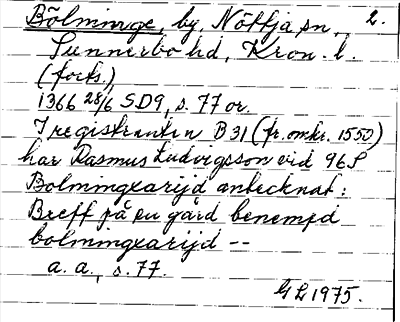 Bölminge, by, Nöttja sn, 2.
Sunnerbo hd, Kron. l.
(forts.)
1366 28/6 SD9, s. 77 or.
I registranten B31 (fr. omkr. 1550)
har Rasmus Ludvigsson vid 96
Bolmingxarijd antecknat:
Breff på en gård benempd
bolmingxarijd --
a. a., s. 77.
GL 1975.